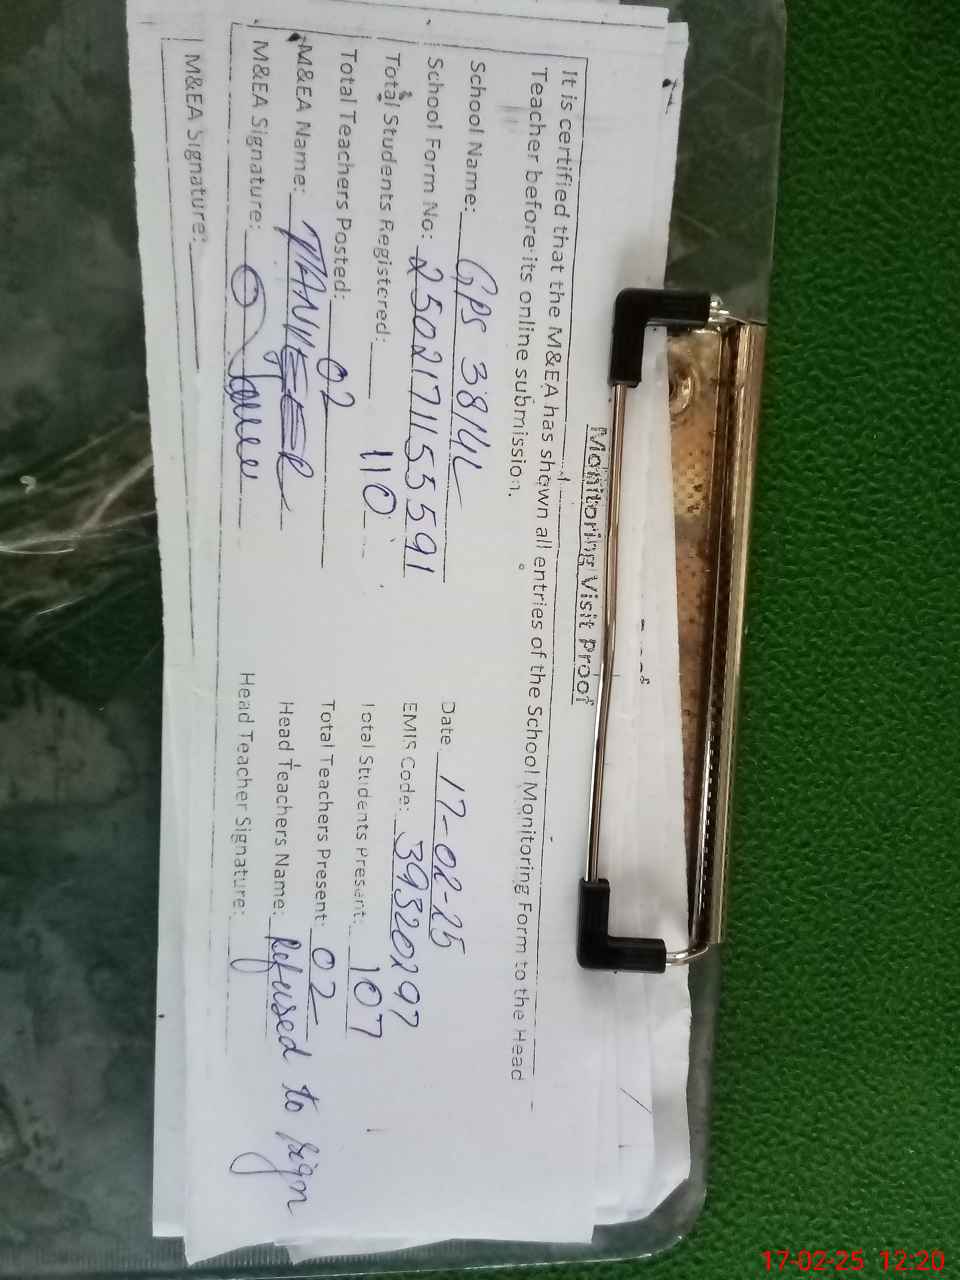 Monitoring Visit Proof
It is certified that the M&EA has shown all entries of the School Monitoring Form to the Head
Teacher before its online submission.
School Name: GPS 381/L Date 17-02-25
School Form No: 250217115 5591 EMIS Code: 39320297
Total Students Registered: 110 Total Students Present: 107
Total Teachers Posted: 02 Total Teachers Present: 02
M&EA Name: TANVEER Head Teachers Name: Refused to sign
M&EA Signature: Head Teacher Signature:
M&EA Signature:
17-02-25 12:20